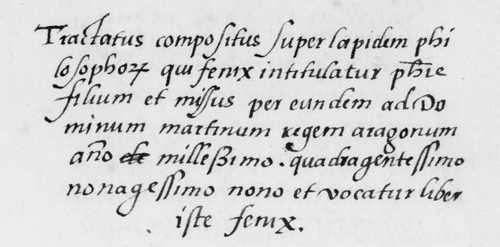 Tractatus compositus super lapidem phi
losophorꝝ qui fenix intitulatur phīe
filium et missus per eundem ad Do
minum martinum regem aragonum
año de millessimo. quadragentessimo
nonagessimo nono et vocatur liber
iste fenix.